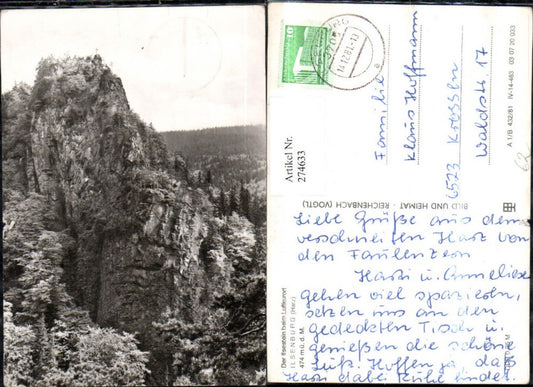 10
3705
14.12.81-13
Artikel Nr.
274633
Familie
Klaus Hoffmann
6523 Krossen
Waldstr. 17
A 1/B 432/81 IV-14-483 03 07 20 033
BILD UND HEIMAT · REICHENBACH (VOGTL)
Der Ilsestein beim Luftkurort
ILSENBURG (Harz)
474 m ü. d. M.
Liebe Grüße aus dem
verschneiten Harz von
den Faulenzern
Hansi u. Anneliese
gehen viel spazieren,
setzen uns an den
gedeckten Tisch u.
genießen die schöne
Luft. Hoffen ja, daß
Hansi dabei Ruhe findet.